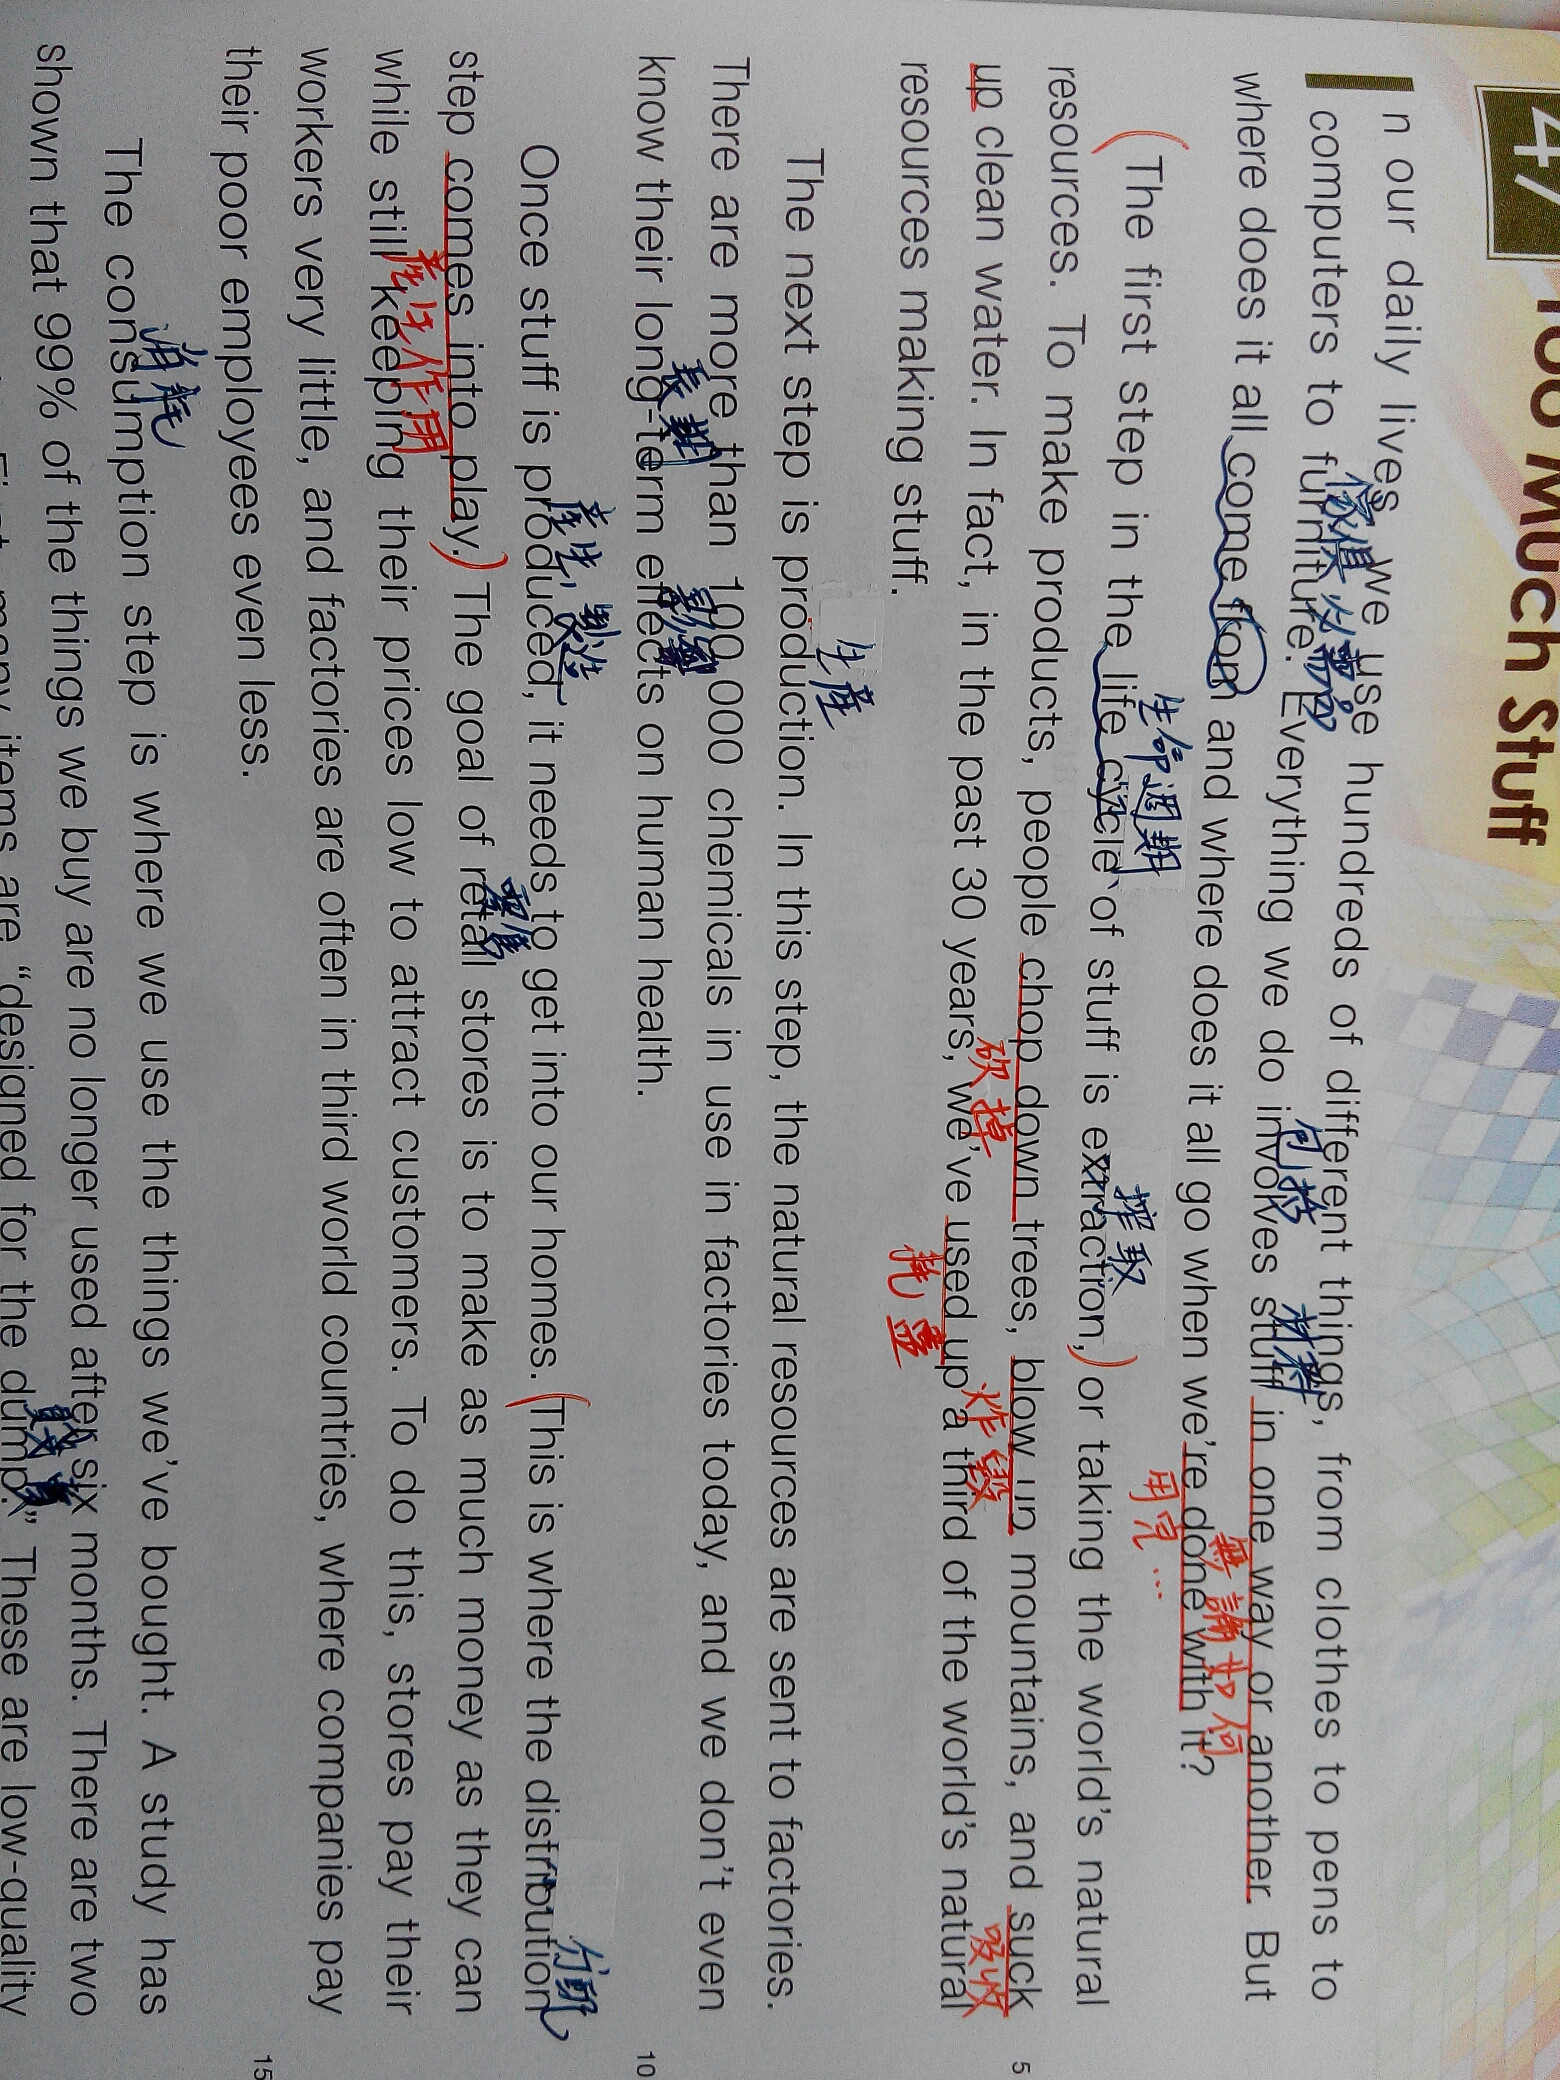 47 Too Much Stuff
In our daily lives we use hundreds of different things, from clothes to pens to
傢俱,必需品
computers to furniture. Everything we do involves stuff in one way or another. But
包括 材料 無論如何
where does it all come from and where does it all go when we're done with it?
用完...
生命週期 搾取
(The first step in the life cycle of stuff is extraction,) or taking the world's natural
resources. To make products, people chop down trees, blow up mountains, and suck
砍掉 炸毀 吸收
up clean water. In fact, in the past 30 years, we've used up a third of the world's natural
耗盡
resources making stuff.
生產
The next step is production. In this step, the natural resources are sent to factories.
There are more than 100,000 chemicals in use in factories today, and we don't even
長期 影響
know their long-term effects on human health.
產生, 製造 分配
Once stuff is produced, it needs to get into our homes. (This is where the distribution
step comes into play.) The goal of retail stores is to make as much money as they can
產生作用 零售
while still keeping their prices low to attract customers. To do this, stores pay their
workers very little, and factories are often in third world countries, where companies pay
their poor employees even less.
消耗
The consumption step is where we use the things we've bought. A study has
shown that 99% of the things we buy are no longer used after six months. There are two
many items are "designed for the dump." These are low-quality
5
10
15